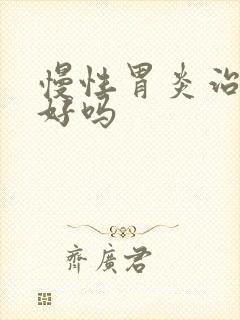 慢性胃炎治
好吗
齐廣君